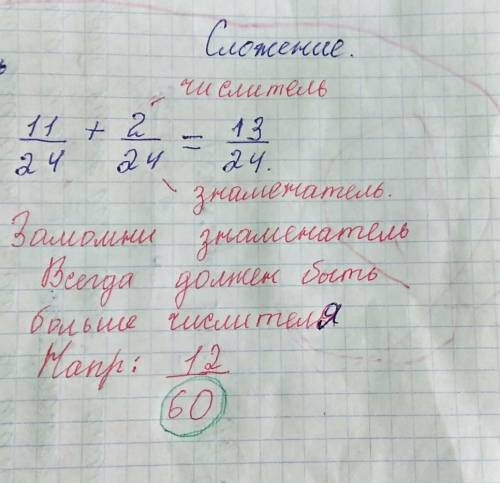 Сложение.
числитель
11/24 + 2/24 = 13/24.
знаменатель.
Замомни знаменатель
Всегда должен быть
больше числителя
Напр: 12/60